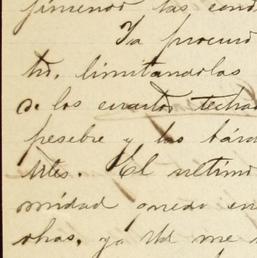 las cond
Ya procuro
limitandolas
de los cuartos techad
pesebre y las bárd
El ultimo
midad quedo en
obras, ya Ud me